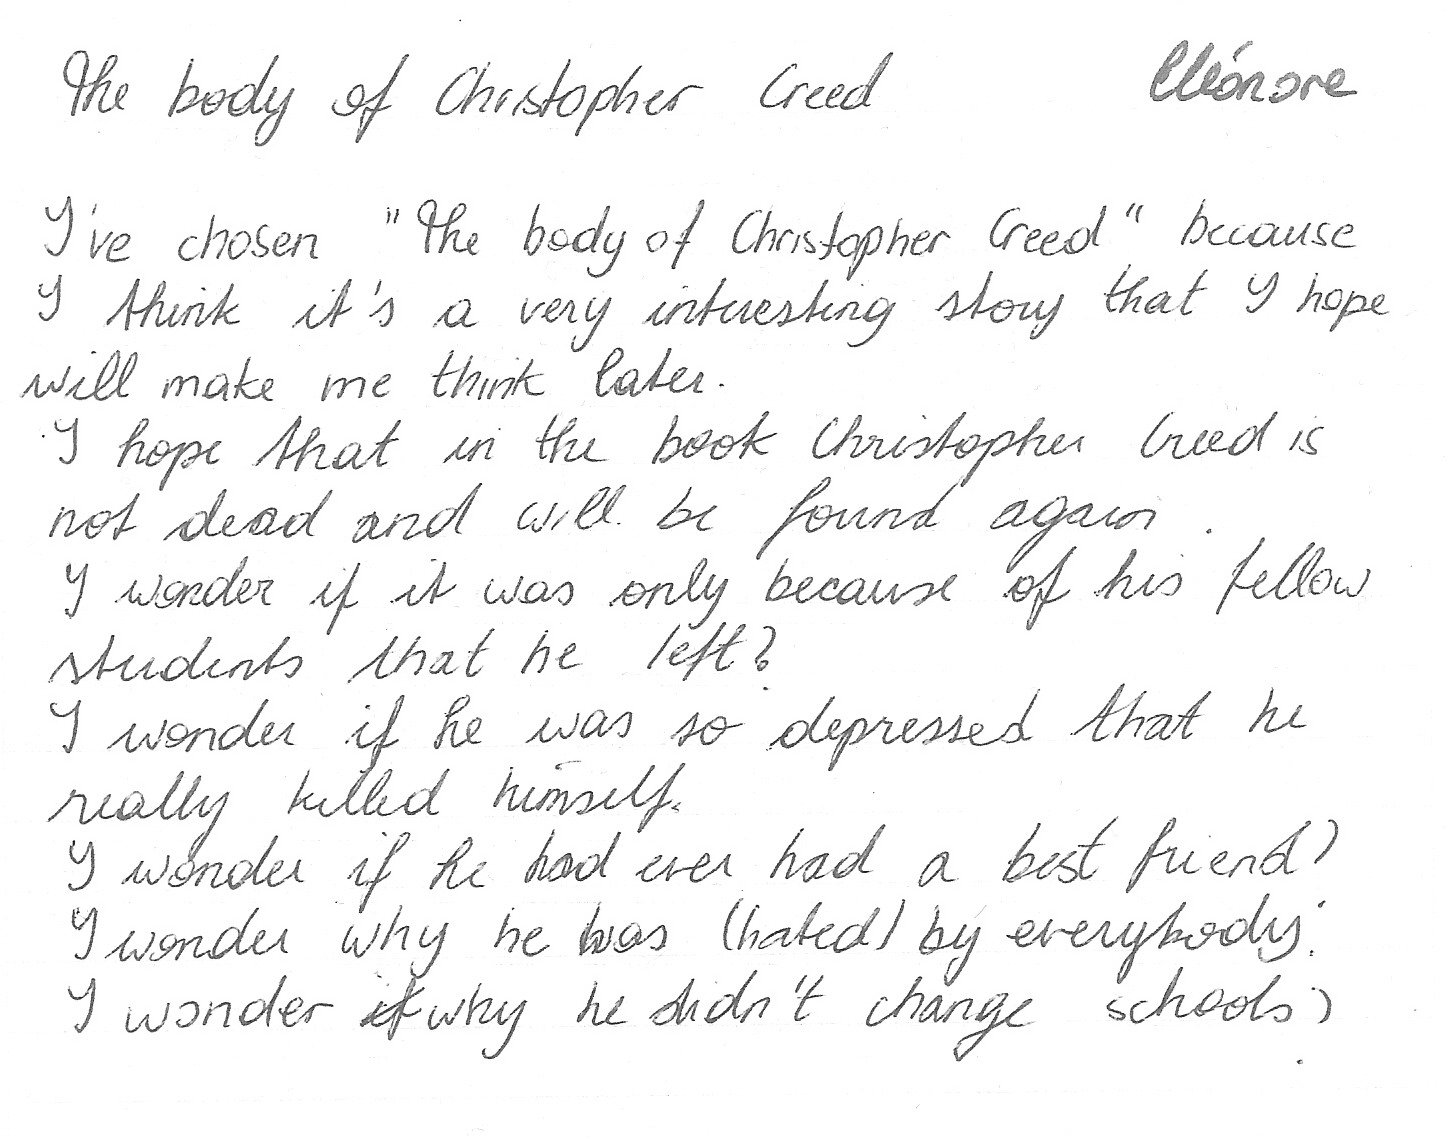 The body of Christopher Creed Eléonore
I've chosen "The body of Christopher Creed" because
I think it's a very interesting story that I hope
will make me think later.
I hope that in the book Christopher Creed is
not dead and will be found again.
I wonder if it was only because of his fellow
students that he left?
I wonder if he was so depressed that he
really killed himself.
I wonder if he had ever had a best friend?
I wonder why he was (hated) by everybody.
I wonder why he didn't change schools?